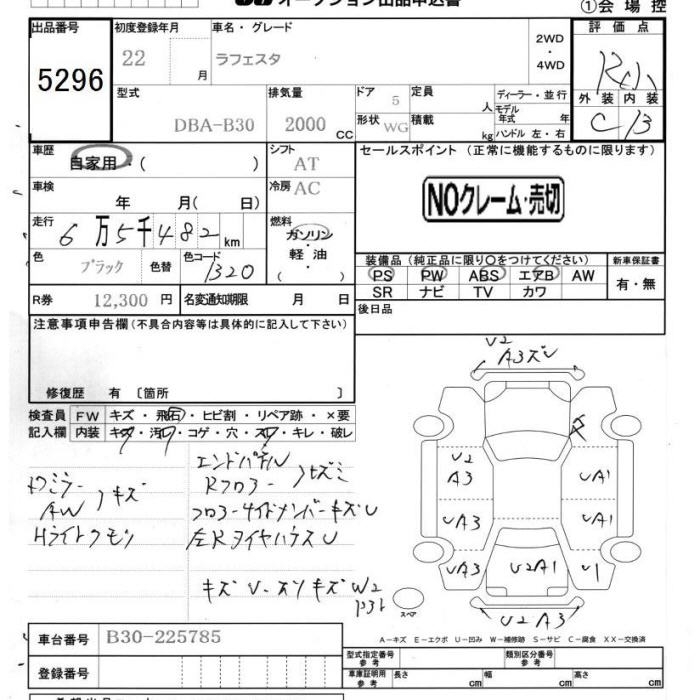 オークション出品申込書
①会場控
出品番号 初度登録年月 車名・グレード 評価点
5296
22 月 ラフェスタ 2WD ・ 4WD
外装 内装
C B
型式 排気量 ドア 定員 ディーラー・並行
DBA-B30 2000 CC 5 人 モデル年式 年
形状 WG 積載 kg ハンドル 左・右
車歴 シフト セールスポイント (正常に機能するものに限ります)
自家用・( ) AT
車検 冷房 AC
年 月( 日) NOクレーム・売切
走行 燃料
6万5千482km ガソリン・軽油・( )
色 ブラック 色替 色コード 1320
装備品 (純正品に限り○をつけてください) 新車保証書
PS PW ABS エアB AW 有・無
SR ナビ TV カワ
R券 12,300円 名変通知期限 月 日
後日品
注意事項申告欄(不具合内容等は具体的に記入して下さい)
修復歴 有 〔箇所 〕
検査員記入欄 FW キズ・飛石・ヒビ割・リペア跡・×要
内装 キズ・汚れ・コゲ・穴・スレ・キレ・破レ
エンドパネル
Rフロアー
AW キズ
Hライトクモリ
フロアーサイドメンバーキズU
左RタイヤハウスU
U2
A3ズレ
U2
A3
UA1
UA3
UA1
UA3
U2A1
U1
U2A3
スペア
A-キズ E-エクボ U-凹み W-補修跡 S-サビ C-腐食 XX-交換済
車台番号 B30-225785
登録番号
型式指定番号 参考 類別区分番号 参考
車庫証明用 参考 長さ cm 幅 cm 高さ cm